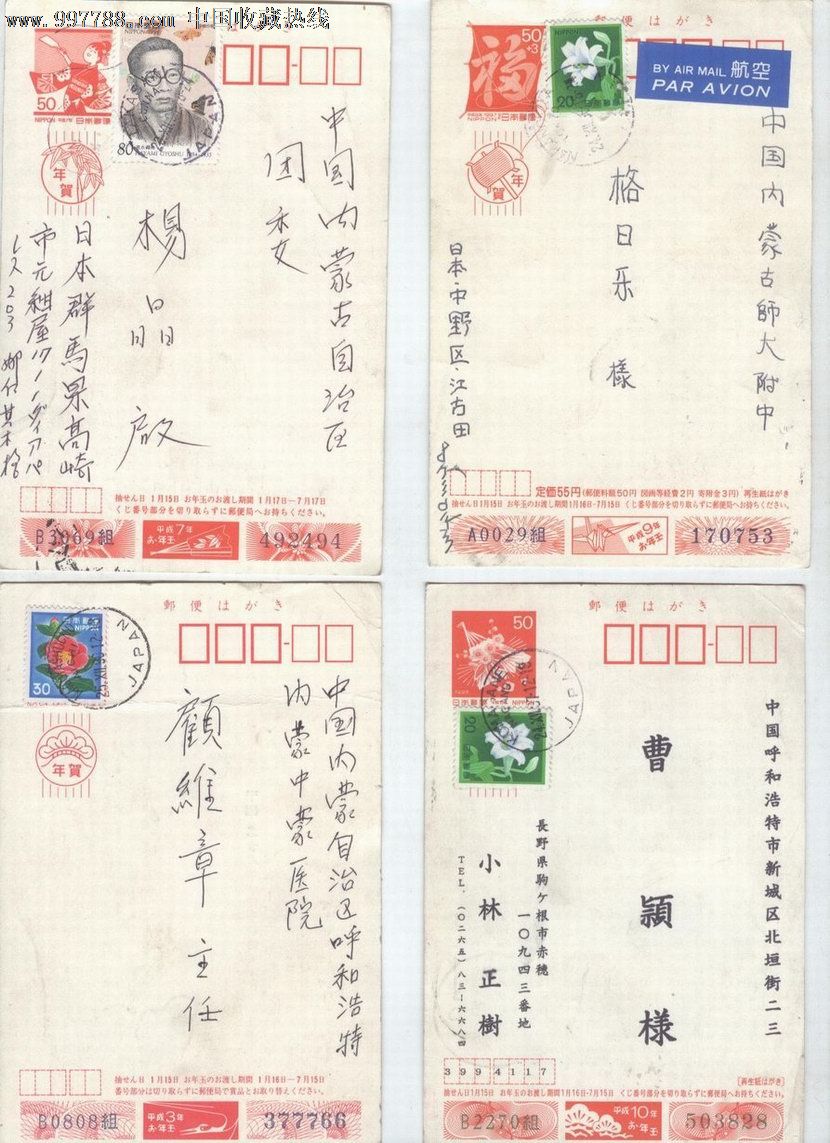 www.997788.com 中国收藏热线
50
NIPPON 平成7年 日本郵便
80
NIPPON
JAPAN
年賀
中国内蒙古自治区
団委
楊晶晶 啟
日本群馬県高崎
抽せん日 1月15日 お年玉のお渡し期間 1月17日—7月17日
くじ番号部分を切り取らずに郵便局へお持ちください。
B3069組
平成7年
お年玉
492494
郵便はがき
50
+3
福
日本郵便
20
日本郵便
NIPPON
BY AIR MAIL 航空
PAR AVION
年賀
中国内蒙古師大附中
格日乐 様
日本・中野区・江古田
定価55円(郵便料額50円 図画等経費2円 寄附金3円) 再生紙はがき
抽せん日1月15日 お年玉のお渡し期間1月16日-7月15日 くじ番号部分を切り取らずに郵便局へお持ちください。
A0029組
平成9年
お年玉
170753
郵便はがき
日本郵便
NIPPON
30
JAPAN
年賀
中国内蒙自治区呼和浩特
内蒙中蒙医院
顧維章 主任
抽せん日 1月15日 お年玉のお渡し期間 1月16日—7月15日
番号部分は切り取らずに郵便局で賞品とお取り替えください。
B0808組
平成3年
お年玉
377766
郵便はがき
50
日本郵便 NIPPON
20
JAPAN
中国呼和浩特市新城区北垣街二三
曹穎様
長野県駒ヶ根市赤穂
一〇九四三番地
小林正樹
TEL.(〇二六五)八三-六六八四
3994117
[再生紙はがき]
抽せん日1月15日 お年玉のお渡し期間1月16日-7月15日 くじ番号部分を切り取らずに郵便局へお持ちください。
B2270組
平成10年
お年玉
503828